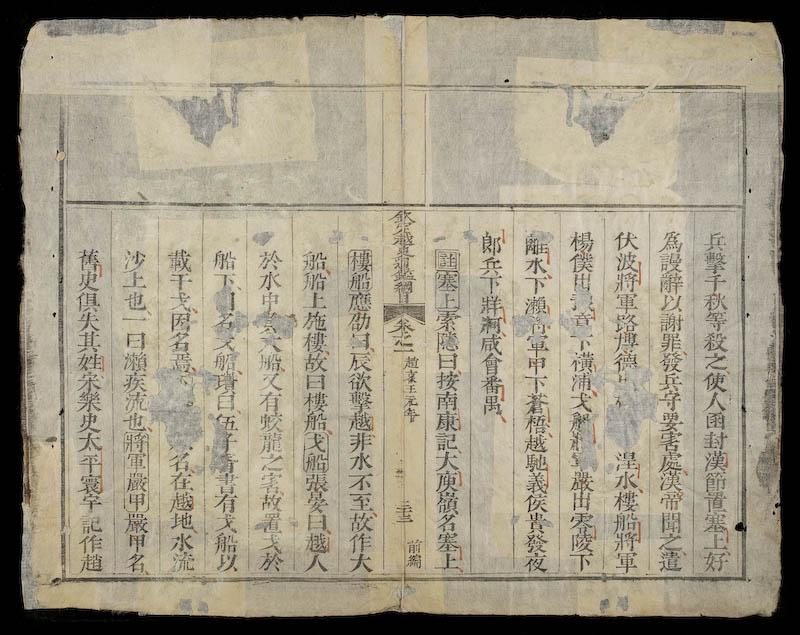 兵擊千秋等殺之使人函封漢節置塞上好
爲謾辭以謝罪發兵守要害處漢帝聞之遣
伏波將軍路博德出 湟水樓船將軍
楊僕出豫章下橫浦戈船將軍嚴出零陵下
離水下瀨將軍甲下蒼梧越馳義侯貴發夜
郎兵下牂牁咸會番禺
註塞上索隱曰按南康記大庾嶺名塞上
欽定越史通鑑綱目 卷之一 趙哀王元年 二十三 前編
樓船應劭曰辰欲擊越非水不至故作大
船船上施樓故曰樓船戈船張晏曰越人
於水中負人船又有蛟龍之害故置戈於
船下因名戈船瓚曰伍子胥書有戈船以
載干戈因名焉 名在越地水流
沙上也一曰瀨疾流也將軍嚴甲嚴甲名
舊史俱失其姓宋樂史太平寰宇記作趙